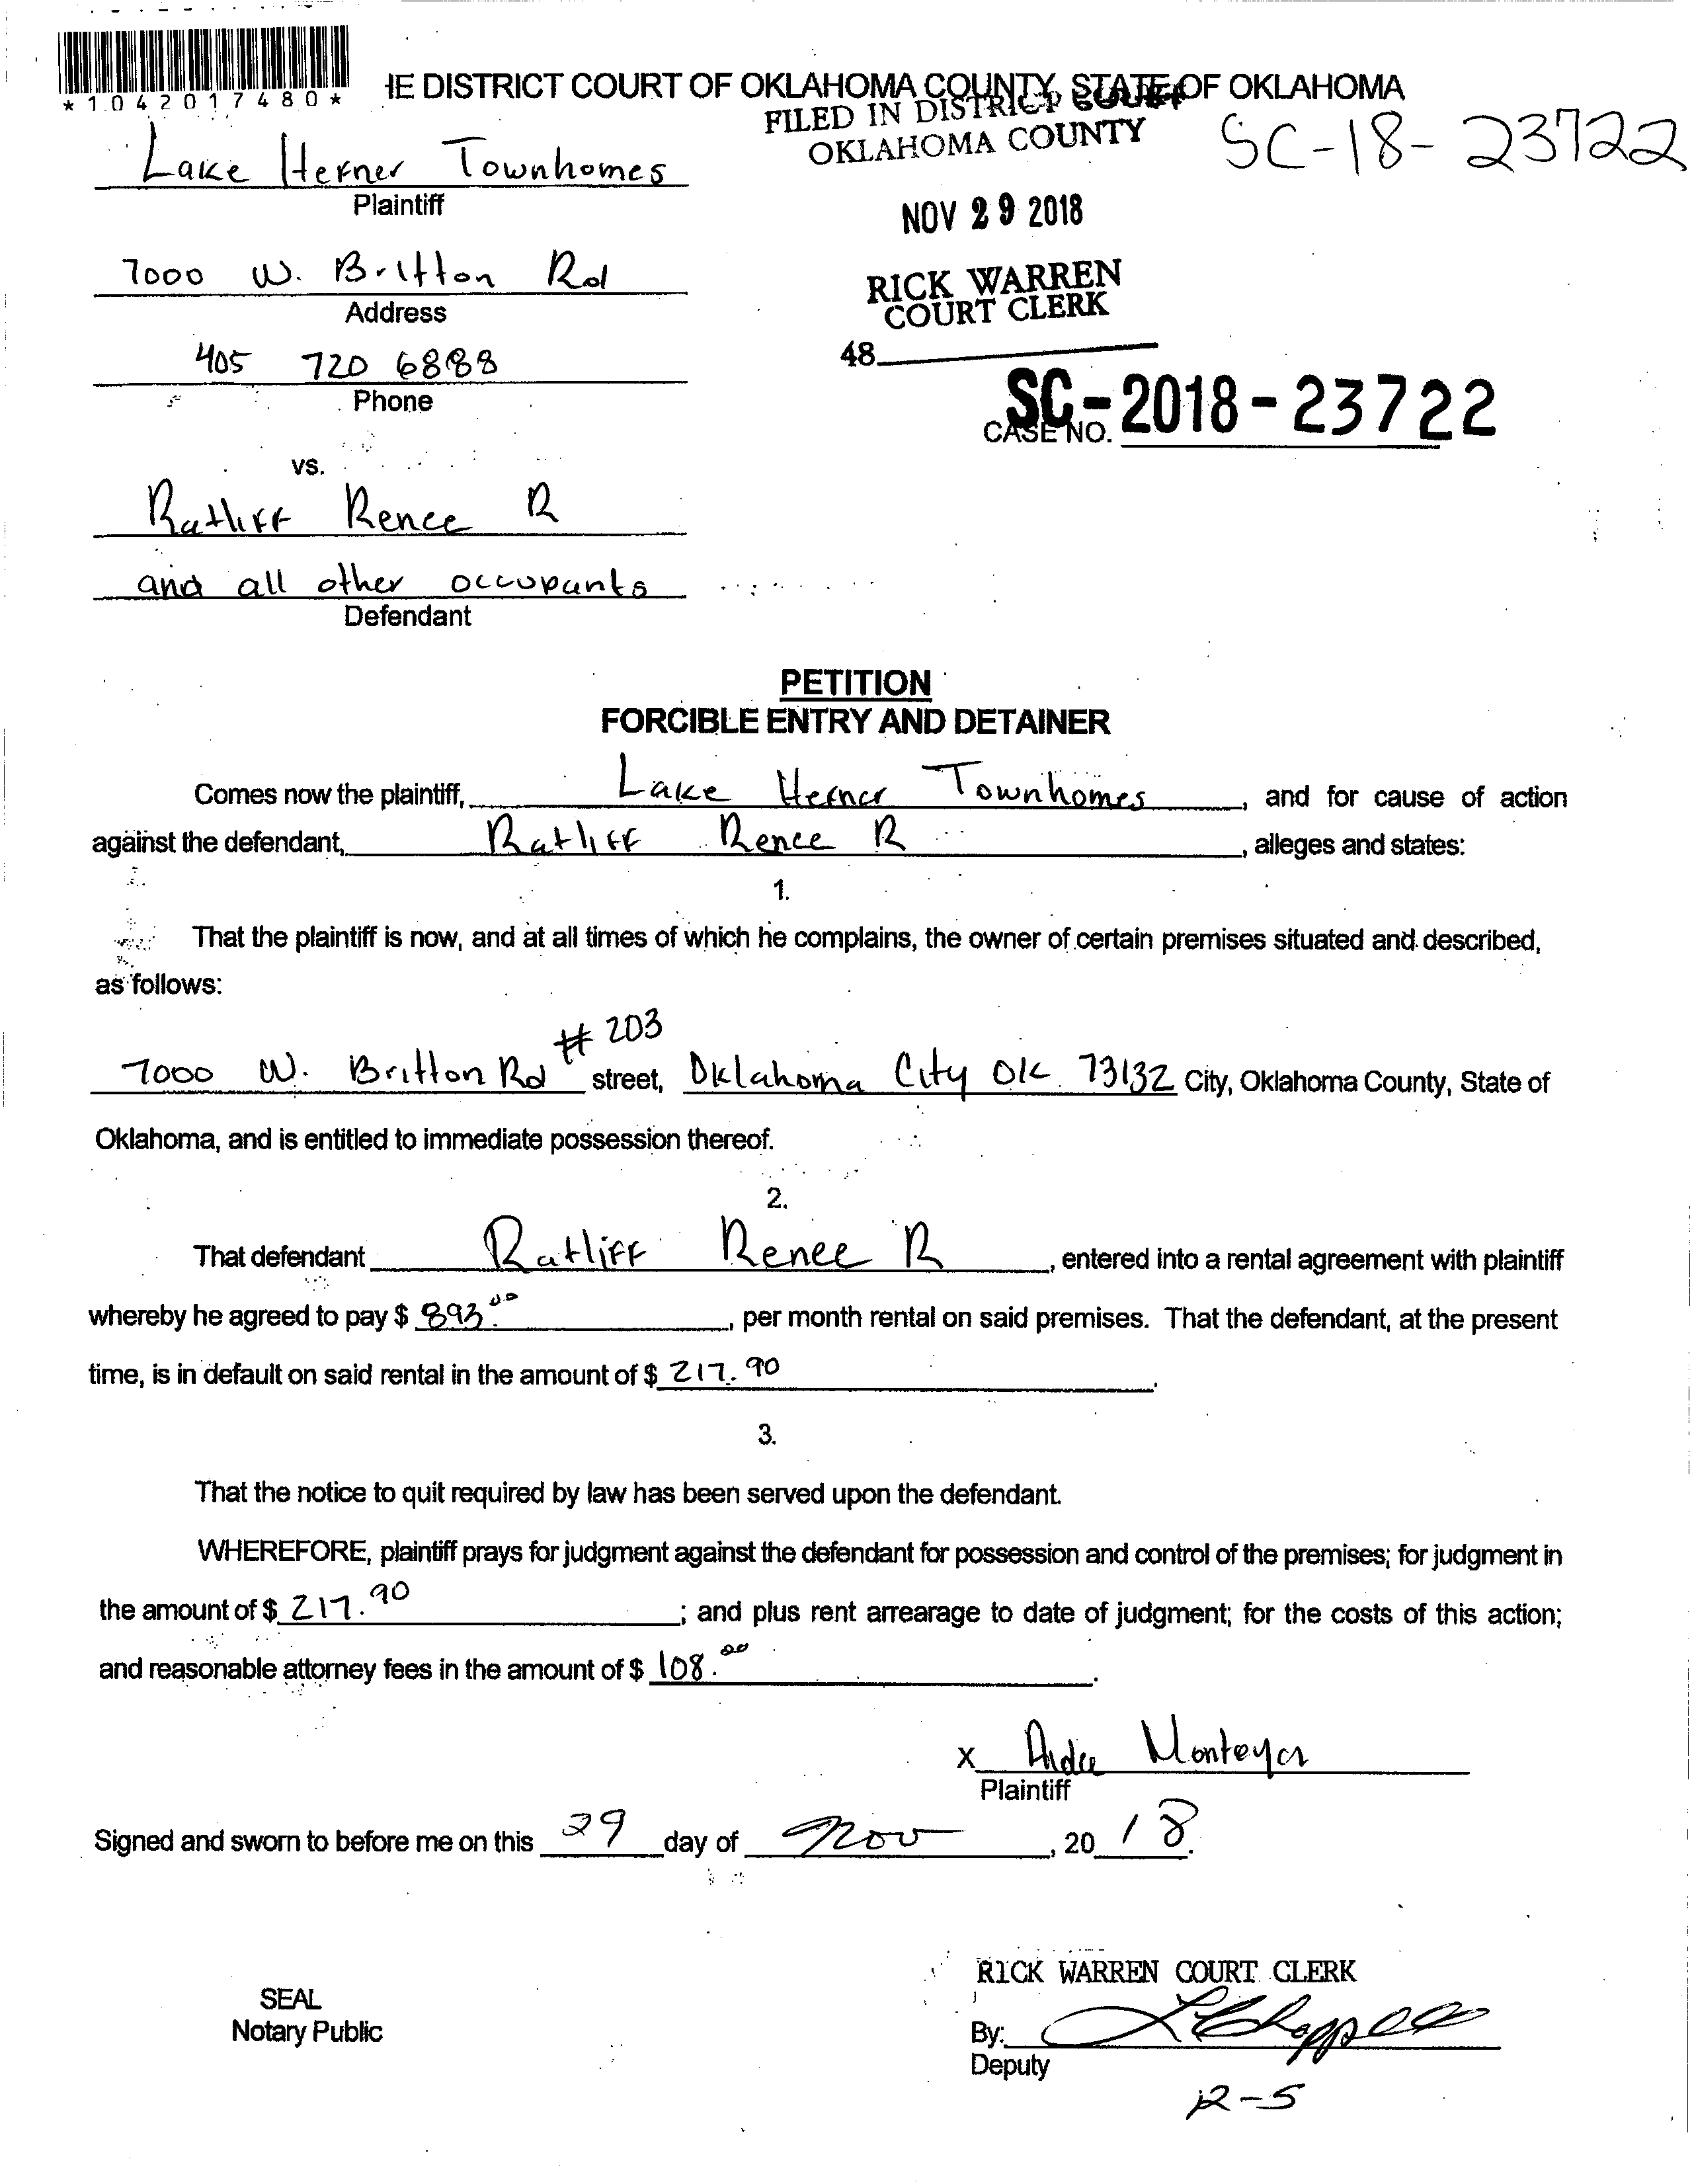 *1042017480*
HE DISTRICT COURT OF OKLAHOMA COUNTY, STATE OF OKLAHOMA
FILED IN DISTRICT COURT
OKLAHOMA COUNTY
SC-18-23722
Lake Hefner Townhomes
Plaintiff
NOV 29 2018
7000 W. Britton Rd
Address
RICK WARREN
COURT CLERK
405 720 6888
Phone
48
SC-2018-23722
CASE NO.
vs.
Ratliff Renee R
and all other occupants
Defendant
PETITION
FORCIBLE ENTRY AND DETAINER
Comes now the plaintiff, Lake Hefner Townhomes, and for cause of action
against the defendant, Ratliff Renee R, alleges and states:
1.
That the plaintiff is now, and at all times of which he complains, the owner of certain premises situated and described,
as follows:
7000 W. Britton Rd #203 street, Oklahoma City OK 73132 City, Oklahoma County, State of
Oklahoma, and is entitled to immediate possession thereof.
2.
That defendant Ratliff Renee R, entered into a rental agreement with plaintiff
whereby he agreed to pay $ 893.00, per month rental on said premises. That the defendant, at the present
time, is in default on said rental in the amount of $ 217.90.
3.
That the notice to quit required by law has been served upon the defendant.
WHEREFORE, plaintiff prays for judgment against the defendant for possession and control of the premises; for judgment in
the amount of $ 217.90; and plus rent arrearage to date of judgment; for the costs of this action;
and reasonable attorney fees in the amount of $ 108.00.
x
Plaintiff
Signed and sworn to before me on this 29 day of Nov, 20 18.
RICK WARREN COURT CLERK
SEAL
Notary Public
By:
Deputy
12-5